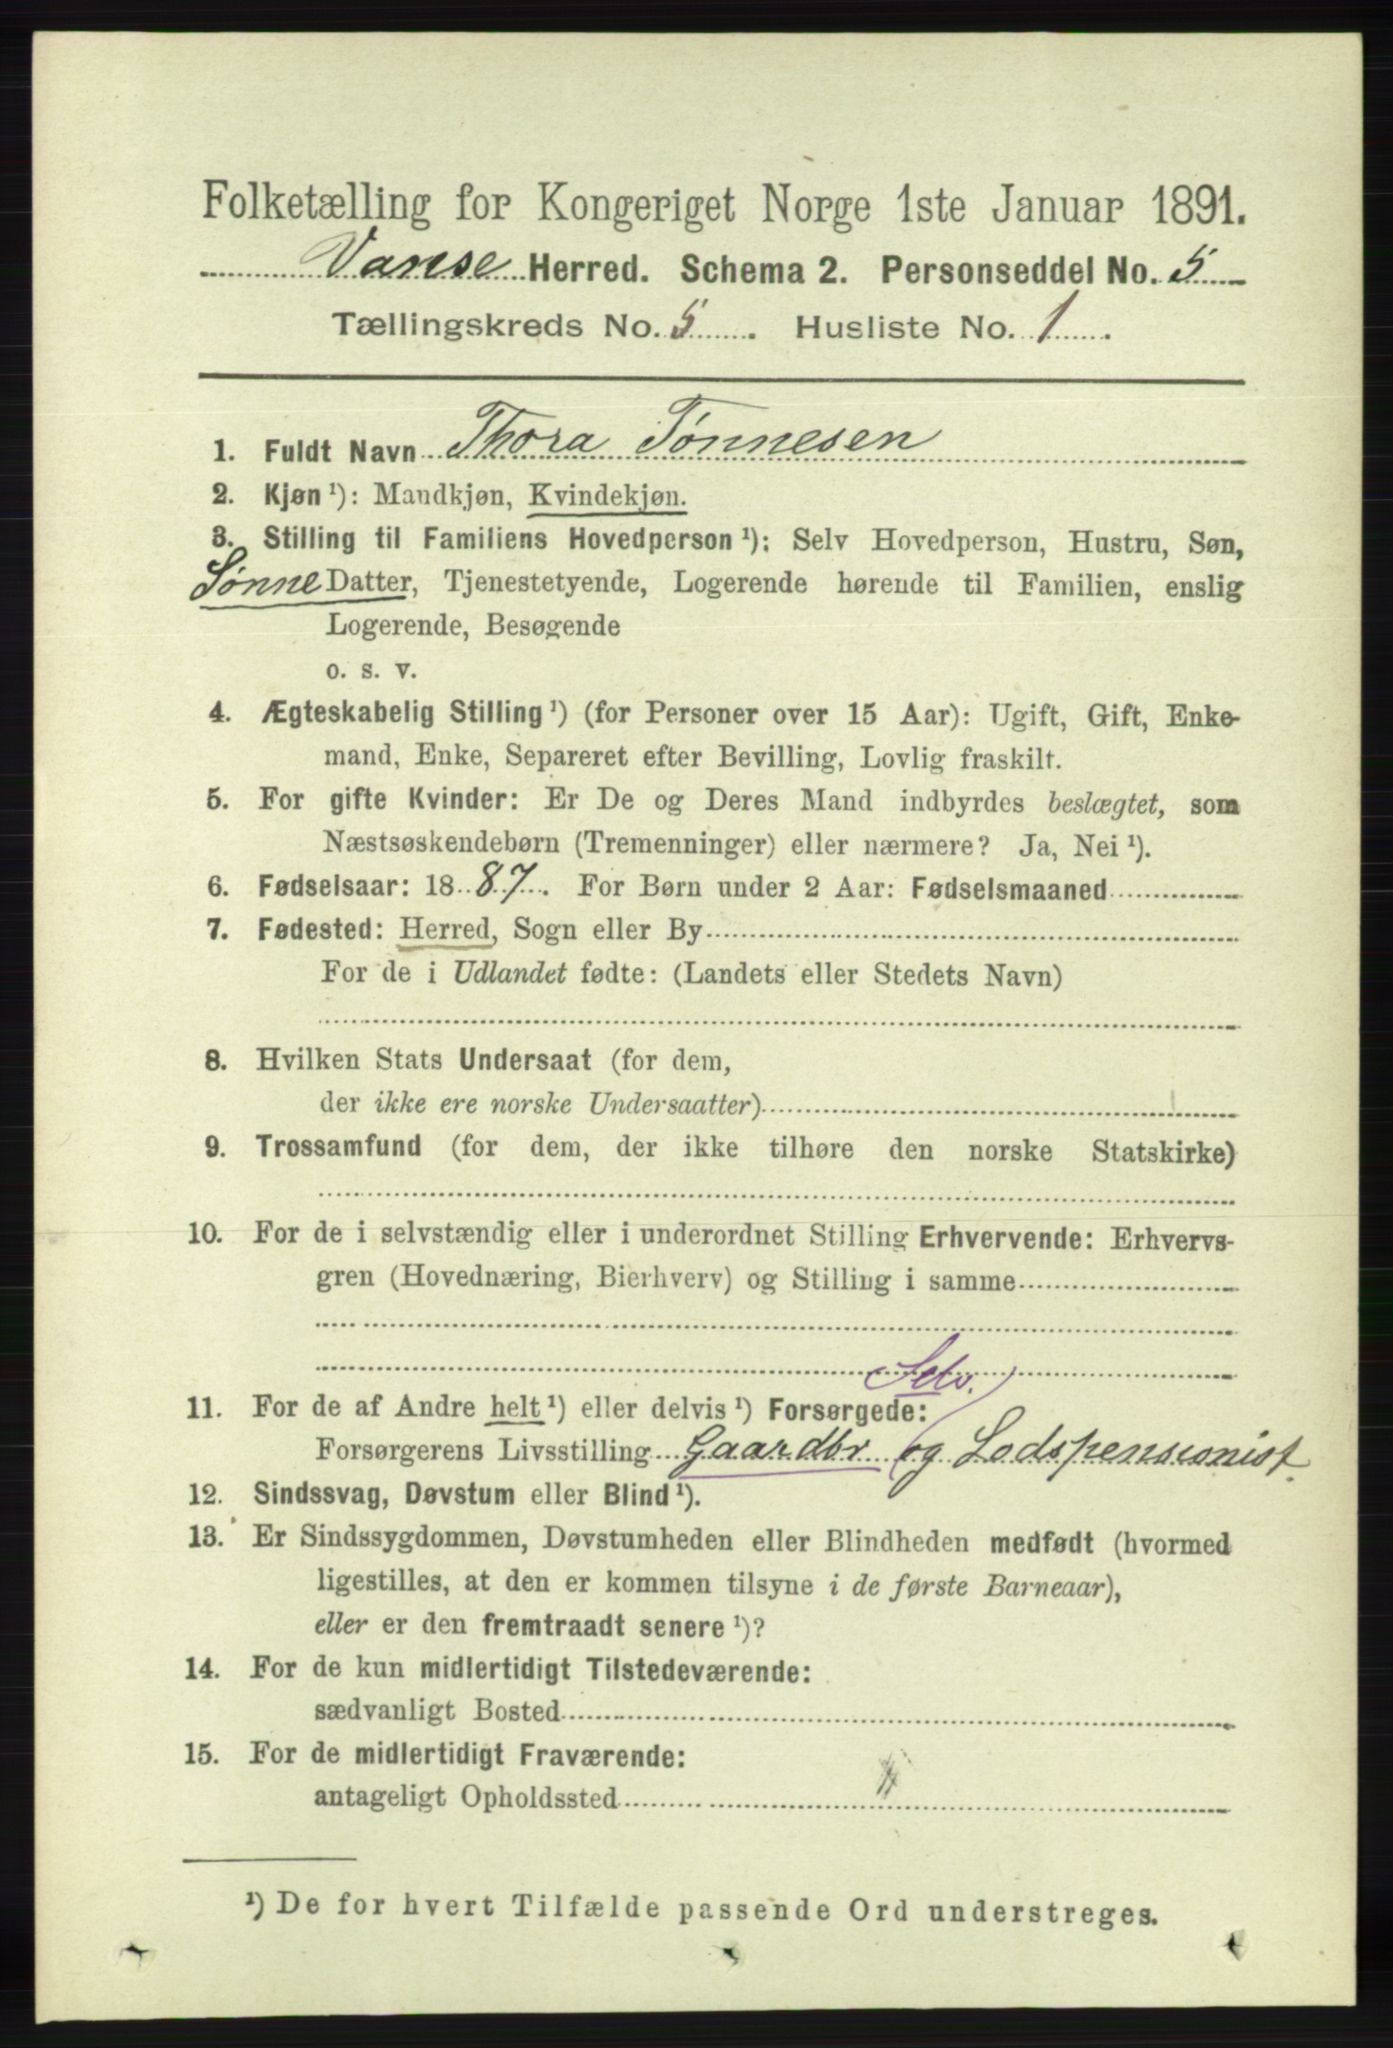 Folketælling for Kongeriget Norge 1ste Januar 1891.
Vanse Herred. Schema 2. Personseddel No. 5
Tællingskreds No. 5. Husliste No. 1.
1. Fuldt Navn Thora Tønnesen
2. Kjøn ¹): Mandkjøn, Kvindekjøn.
3. Stilling til Familiens Hovedperson ¹): Selv Hovedperson, Hustru, Søn,
Sønne Datter, Tjenestetyende, Logerende hørende til Familien, enslig
Logerende, Besøgende
o. s. v.
4. Ægteskabelig Stilling ¹) (for Personer over 15 Aar): Ugift, Gift, Enke-
mand, Enke, Separeret efter Bevilling, Lovlig fraskilt.
5. For gifte Kvinder: Er De og Deres Mand indbyrdes beslægtet, som
Næstsøskendebørn (Tremenninger) eller nærmere? Ja, Nei ¹).
6. Fødselsaar: 1887. For Børn under 2 Aar: Fødselsmaaned
7. Fødested: Herred, Sogn eller By
For de i Udlandet fødte: (Landets eller Stedets Navn)
8. Hvilken Stats Undersaat (for dem,
der ikke ere norske Undersaatter)
9. Trossamfund (for dem, der ikke tilhøre den norske Statskirke)
10. For de i selvstændig eller i underordnet Stilling Erhvervende: Erhvervs-
gren (Hovednæring, Bierhverv) og Stilling i samme
Selv.
11. For de af Andre helt ¹) eller delvis ¹) Forsørgede:
Forsørgerens Livsstilling Gaardbr og Lodspensionist
12. Sindssvag, Døvstum eller Blind ¹).
13. Er Sindssygdommen, Døvstumheden eller Blindheden medfødt (hvormed
ligestilles, at den er kommen tilsyne i de første Barneaar),
eller er den fremtraadt senere ¹)?
14. For de kun midlertidigt Tilstedeværende:
sædvanligt Bosted
15. For de midlertidigt Fraværende:
antageligt Opholdssted
¹) De for hvert Tilfælde passende Ord understreges.